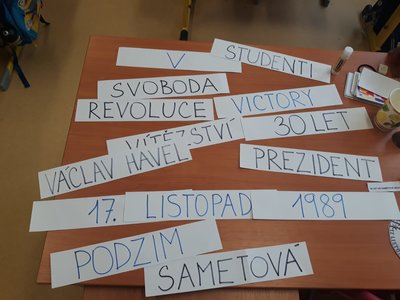 V
STUDENTI
SVOBODA
REVOLUCE
VICTORY
VÍTĚZSTVÍ
30 LET
VÁCLAV HAVEL
PREZIDENT
17. LISTOPAD 1989
PODZIM
SAMETOVÁ